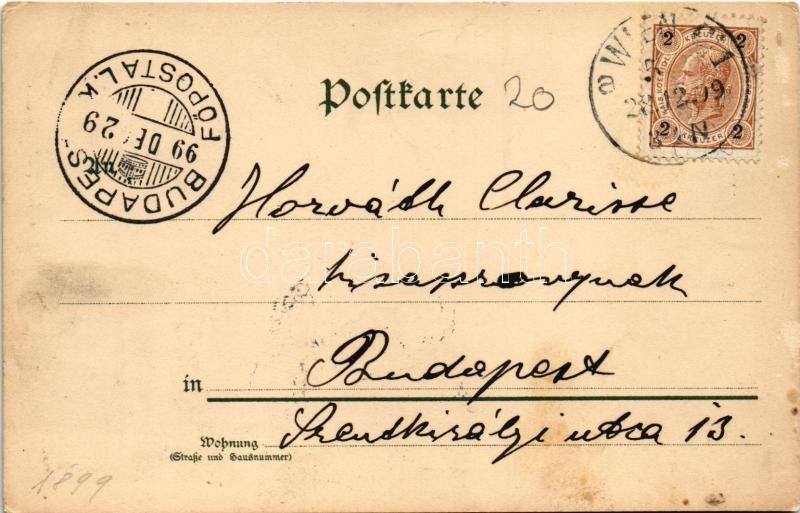 Postkarte 20
WIEN 1
2 KREUZER 2
2 KREUZER 2
BUDAPES-
FŐPOSTAL.K
99 DE 29
An
Horváth Clarisse
kisasszonynak
darabanth
in Budapest
Wohnung
(Straße und Hausnummer)
Szentkirályi utca 13.
1899